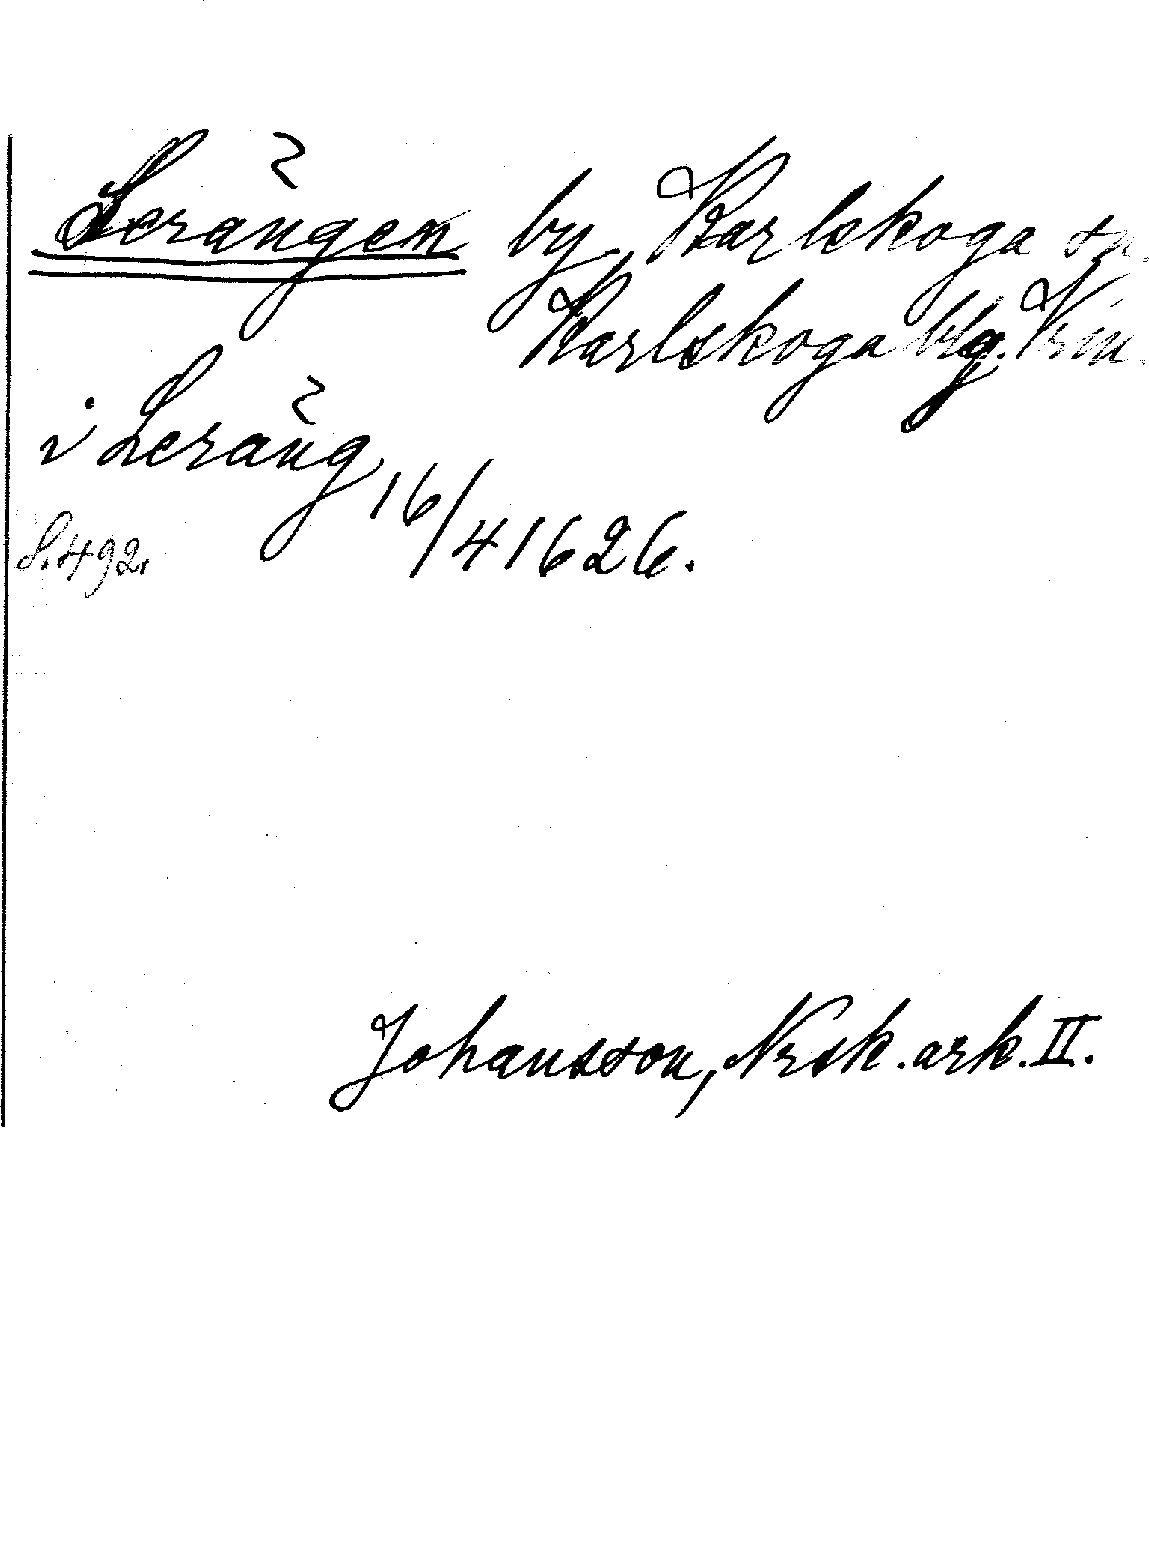 Lerängen by, Karlskoga sn.
Karlskoga blg. Vrm.
i Leräng 16/4 1626.
S. 492.
Johansson, Nrsk. ark. II.